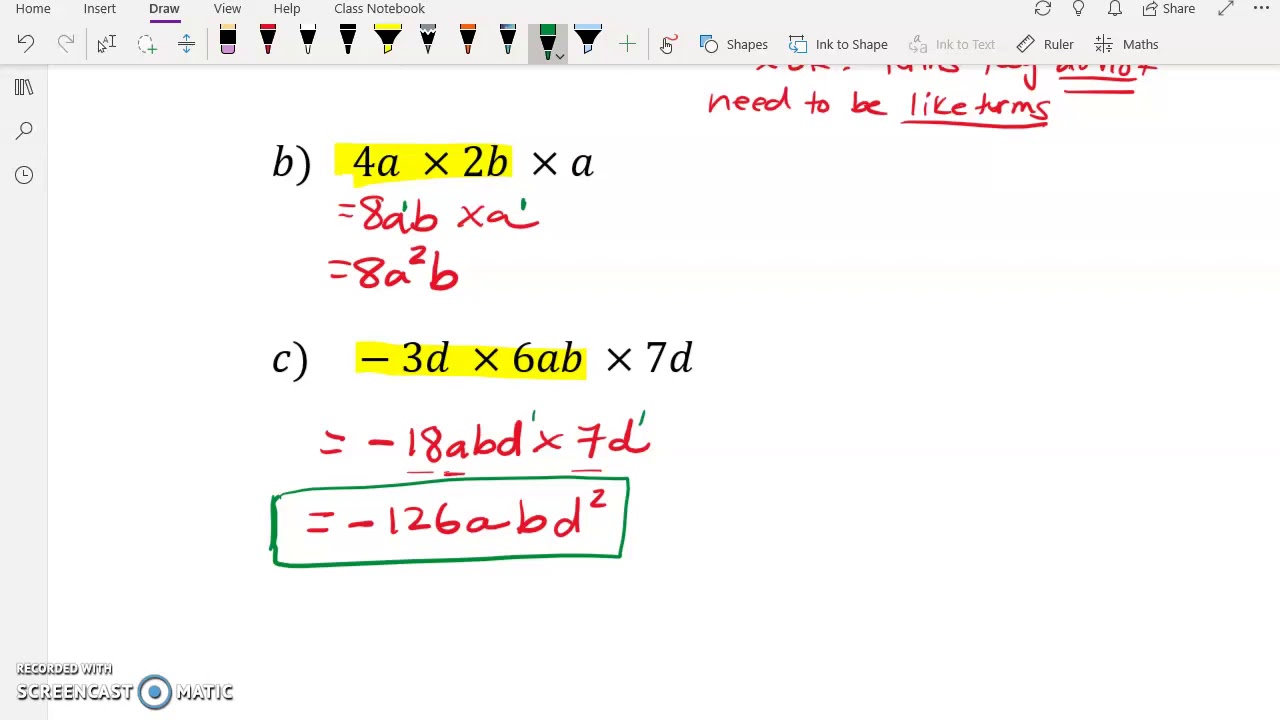 Home Insert Draw View Help Class Notebook Share
Shapes Ink to Shape Ink to Text Ruler Maths
need to be like terms
b) 4a × 2b × a
= 8a¹b × a¹
= 8a²b
c) − 3d × 6ab × 7d
= − 18abd¹ × 7d¹
= − 126abd²
RECORDED WITH
SCREENCAST MATIC